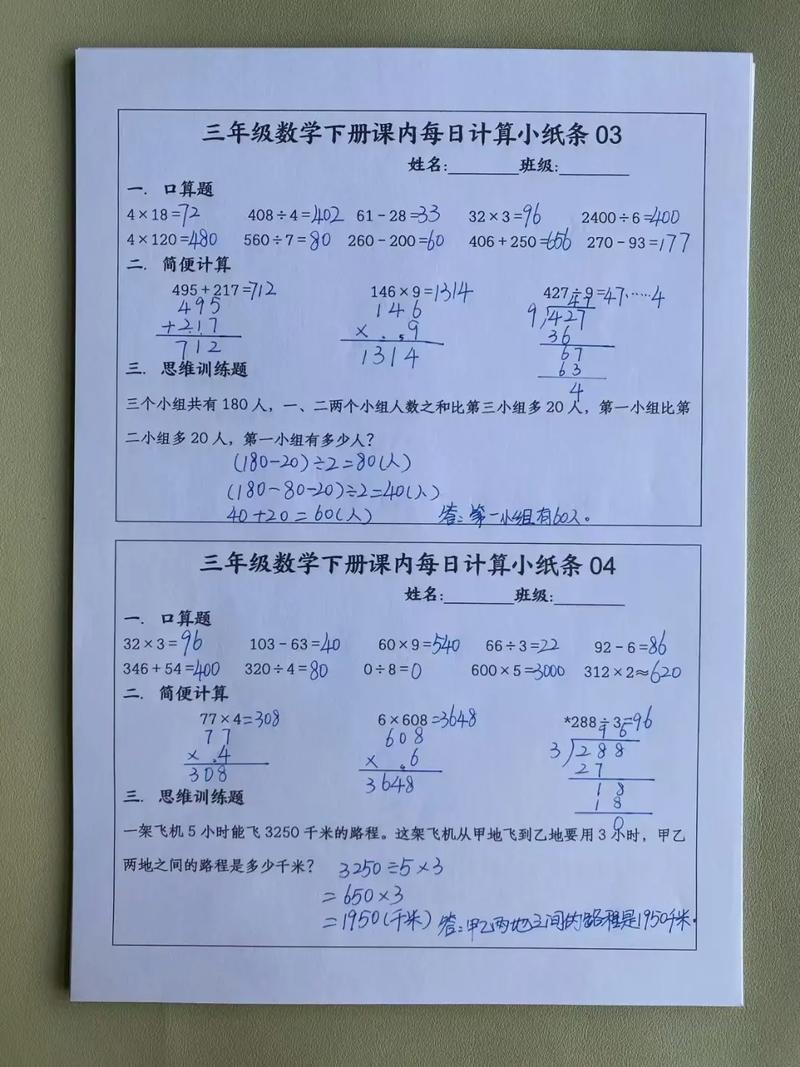 三年级数学下册课内每日计算小纸条 03
姓名:________ 班级:________
一. 口算题
4×18=72 408÷4=402 61-28=33 32×3=96 2400÷6=400
4×120=480 560÷7=80 260-200=60 406+250=656 270-93=177
二. 简便计算
495+217=712 146×9=1314 427÷9=47……4
495 146 47
+217 ×9 9 427
712 1314 36
67
63
4
三. 思维训练题
三个小组共有 180 人，一、二两个小组人数之和比第三小组多 20 人，第一小组比第
二小组多 20 人，第一小组有多少人？
(180-20)÷2=80(人)
(180-80-20)÷2=40(人)
40+20=60(人) 答:第一小组有60人。
三年级数学下册课内每日计算小纸条 04
姓名:________ 班级:________
一. 口算题
32×3=96 103-63=40 60×9=540 66÷3=22 92-6=86
346+54=400 320÷4=80 0÷8=0 600×5=3000 312×2≈620
二. 简便计算
77×4=308 6×608=3648 *288÷3=96
77 608 96
×4 ×6 3 288
308 3648 27
18
18
0
三. 思维训练题
一架飞机 5 小时能飞 3250 千米的路程。这架飞机从甲地飞到乙地要用 3 小时，甲乙
两地之间的路程是多少千米？ 3250÷5×3
=650×3
=1950(千米) 答:甲乙两地之间的路程是1950千米.